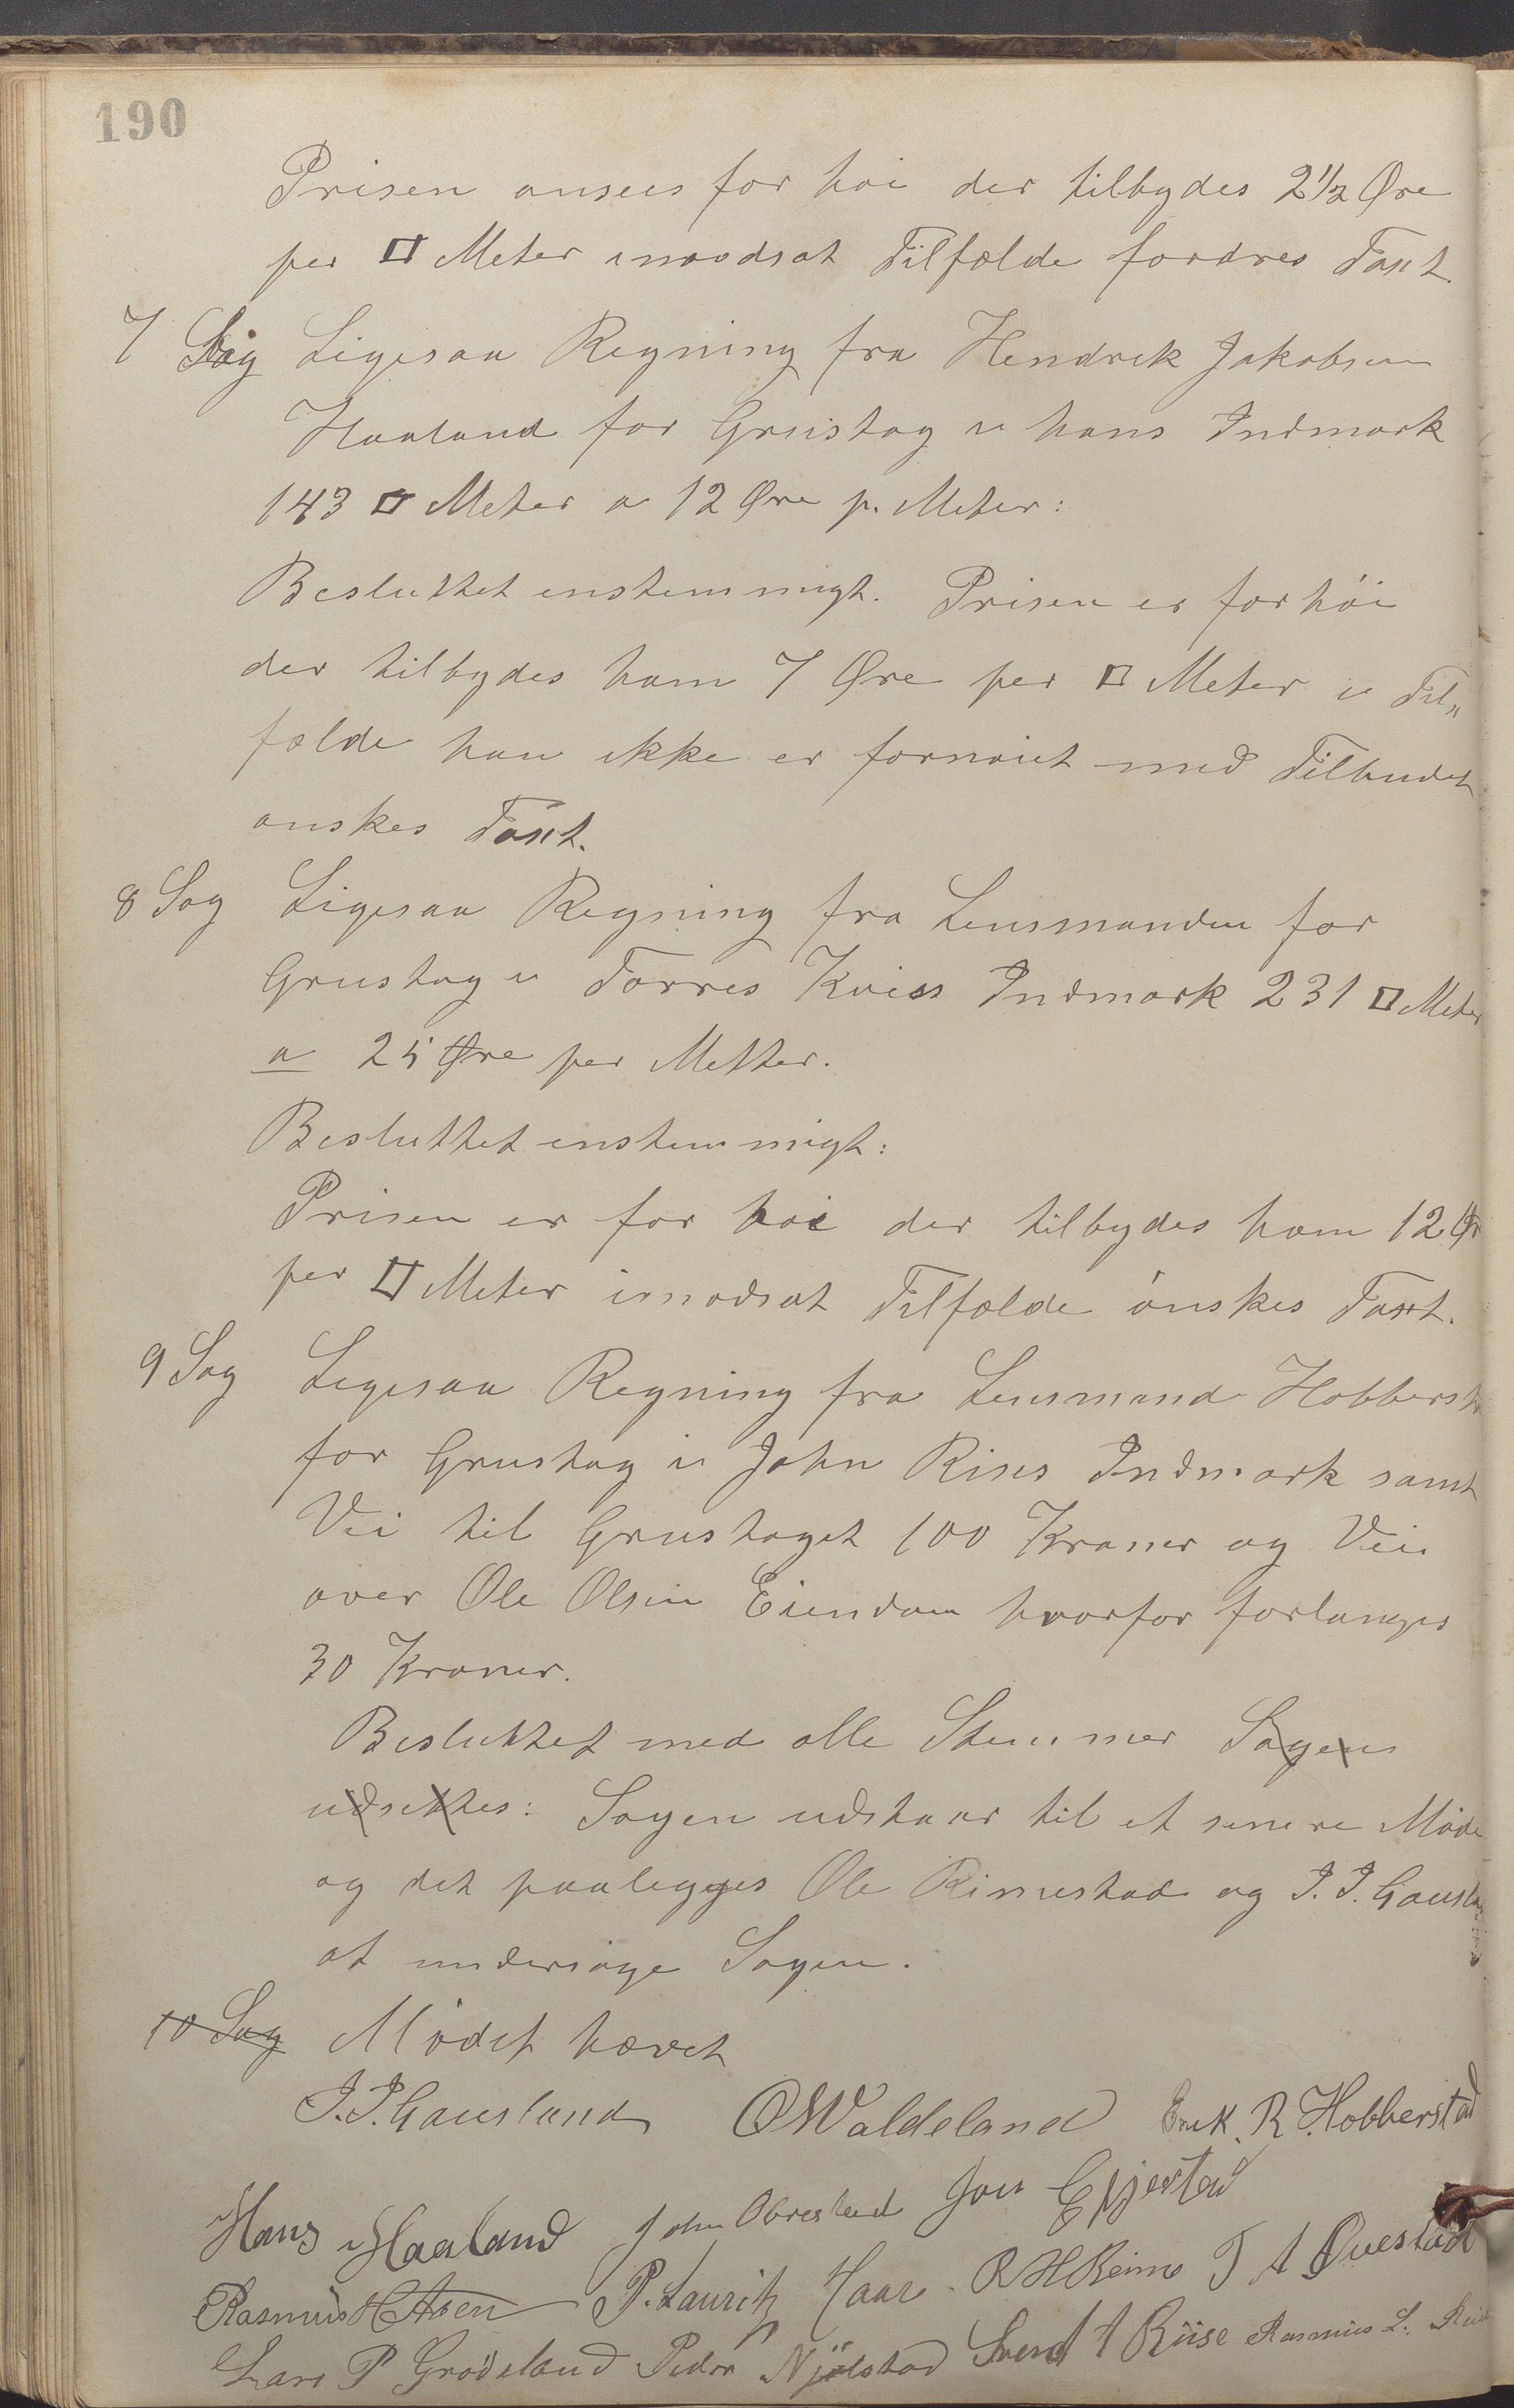 190
Prisen ansees for høi der tilbydes 2 1/2 Øre
per □ Meter imodsat Tilfælde fordres Taxt.
7 Sag Ligesaa Regning fra Hendrik Jakobsen
Haaland for Grustag i hans Indmark
143 □ Meter a 12 Øre p. Meter:
Besluttet enstemmigt. Prisen er for høi
der tilbydes ham 7 Øre per □ Meter i Til„
fælde han ikke er fornøiet med Tilbudet
ønskes Taxt.
8 Sag Ligesaa Regning fra Lensmanden for
Grustag i Torres Kviss Indmark 231 □ Meter
a 25 Øre per Metter.
Besluttet enstemmigt:
Prisen er for høi der tilbydes ham 12 Ør
per □ Meter imodsat Tilfælde ønskes Taxt.
9 Sag Ligesaa Regning fra Lensmand Hobberst
for Grustag i John Rises Indmark samt
Vei til Grustaget 100 Kroner og Vei
over Ole Olsen Eiendom hvorfor forlanges
30 Kroner.
Besluttet med alle Stemmer Sagen
udsettes: Sagen udstaar til et senere Møde
og det paalegges Ole Rimestad og J. J. Gausla
at undersøge Sagen.
10 Sag Mødet hævet
J. J. Gausland OWaldeland Erik. R. Hobberstad
Hans Haaland John Obrestad Jon Epjestad
Rasmus H Aaen P. Lauritz Haar. R H Reime T A Questad
Lars P Grødeland Peder Njølstad Svend A Riise Rasmus L.